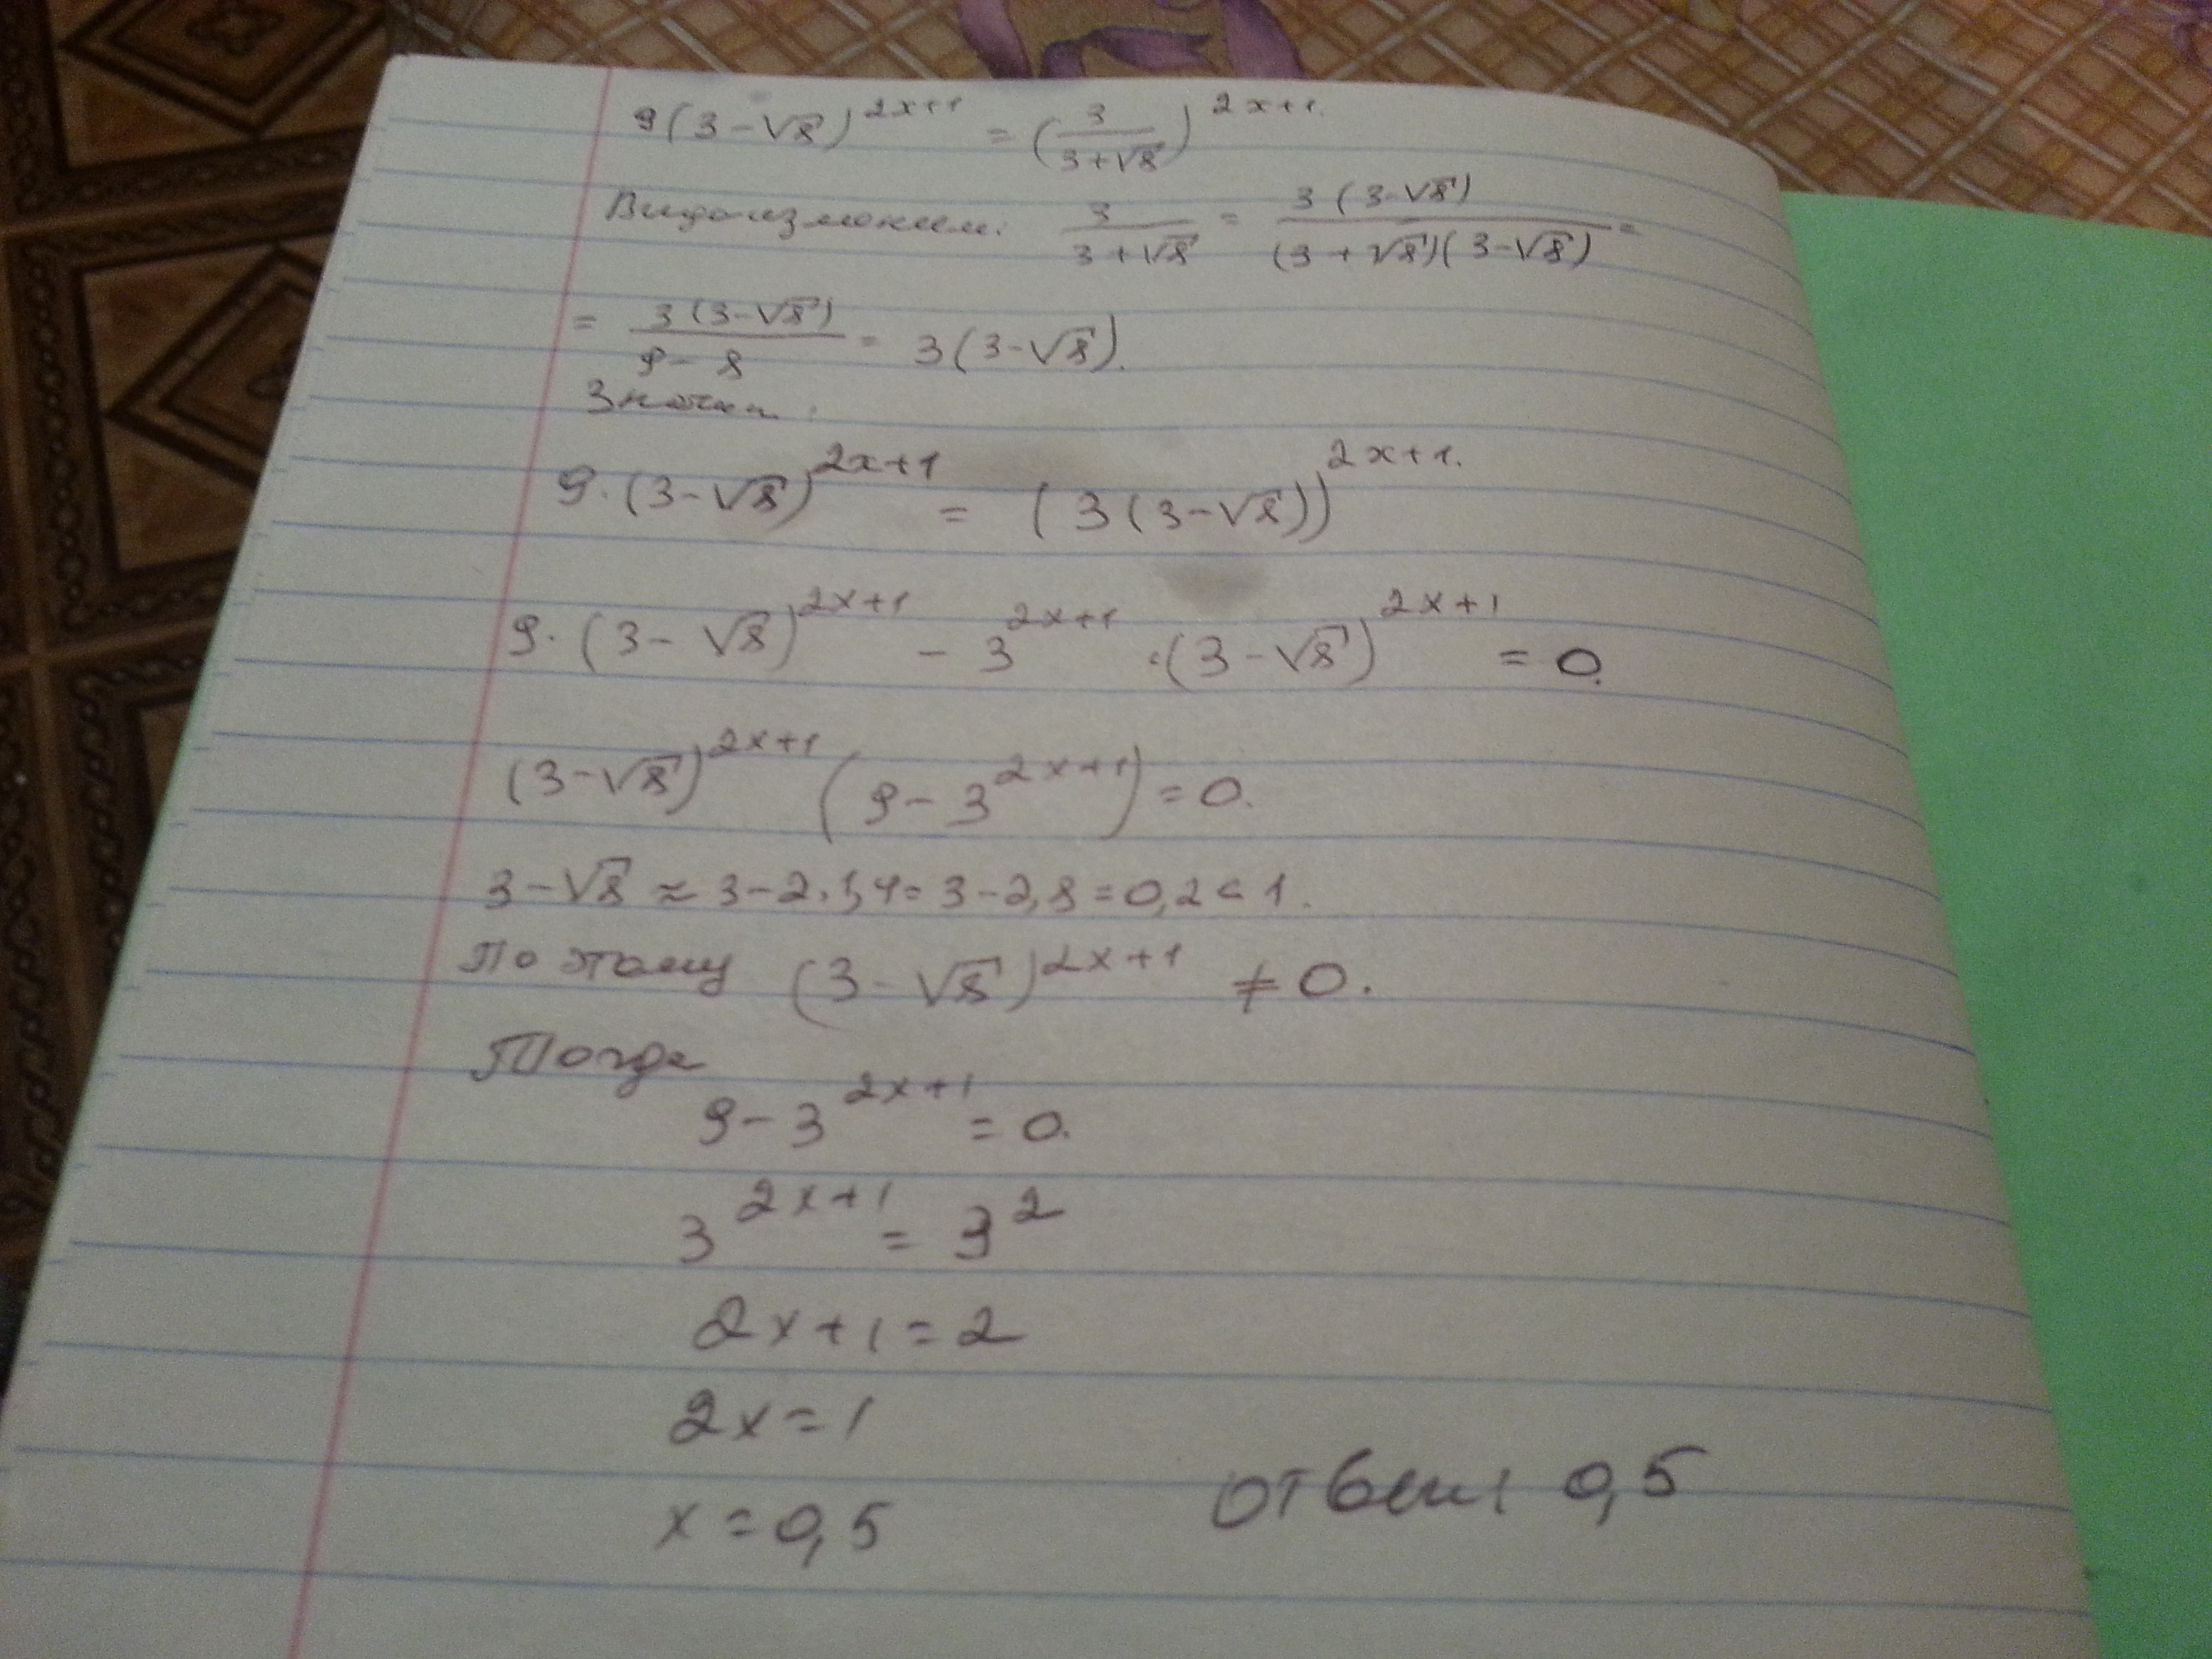 9(3-√8)^{2x+1} = (3/(3+√8))^{2x+1}.
Видоизменим: 3/(3+√8) = 3(3-√8)/((3+√8)(3-√8)) =
= 3(3-√8)/(9-8) = 3(3-√8).
Значит:
9·(3-√8)^{2x+1} = (3(3-√8))^{2x+1}.
9·(3-√8)^{2x+1} - 3^{2x+1}·(3-√8)^{2x+1} = 0.
(3-√8)^{2x+1} (9-3^{2x+1}) = 0.
3-√8 ≈ 3-2·1,4 = 3-2,8 = 0,2 < 1.
По этому (3-√8)^{2x+1} ≠ 0.
Тогда
9-3^{2x+1} = 0.
3^{2x+1} = 3^2
2x+1=2
2x=1
x=0,5
Ответ: 0,5